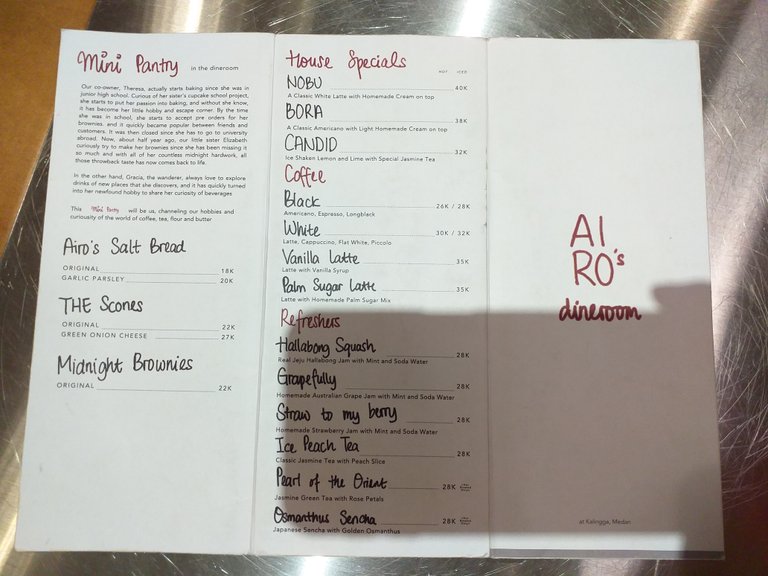 Mini Pantry in the dineroom
Our co-owner, Theresa, actually starts baking since she was in
junior high school. Curious of her sister's cupcake school project,
she starts to put her passion into baking, and without she know,
it has become her little hobby and escape corner. By the time
she was in school, she starts to accept pre orders for her
brownies. and it quickly became popular between friends and
customers. It was then closed since she has to go to university
abroad. Now, about half year ago, our little sister Elizabeth
curiously try to make her brownies since she has been missing it
so much and with all of her countless midnight hardwork, all
those throwback taste has now comes back to life.
In the other hand, Gracia, the wanderer, always love to explore
drinks of new places that she discovers, and it has quickly turned
into her newfound hobby to share her curiosity of beverages
This Mini Pantry will be us, channeling our hobbies and
curiousity of the world of coffee, tea, flour and butter
Airo's Salt Bread
ORIGINAL 18K
GARLIC PARSLEY 20K
THE Scones
ORIGINAL 22K
GREEN ONION CHEESE 27K
Midnight Brownies
ORIGINAL 22K
House Specials
HOT ICED
NOBU 40K
A Classic White Latte with Homemade Cream on top
BORA 38K
A Classic Americano with Light Homemade Cream on top
CANDID 32K
Ice Shaken Lemon and Lime with Special Jasmine Tea
Coffee
Black 26K / 28K
Americano, Espresso, Longblack
White 30K / 32K
Latte, Cappuccino, Flat White, Piccolo
Vanilla Latte 35K
Latte with Vanilla Syrup
Palm Sugar Latte 35K
Latte with Homemade Palm Sugar Mix
Refreshers
Hallabong Squash 28K
Real Jeju Hallabong Jam with Mint and Soda Water
Grapefully 28K
Homemade Australian Grape Jam with Mint and Soda Water
Straw to my berry 28K
Homemade Strawberry Jam with Mint and Soda Water
Ice Peach Tea 28K
Classic Jasmine Tea with Peach Slice
Pearl of the Orient 28K
Jasmine Green Tea with Rose Petals
Osmanthus Sencha 28K
Japanese Sencha with Golden Osmanthus
AI
RO's
dineroom
at Kalingga, Medan